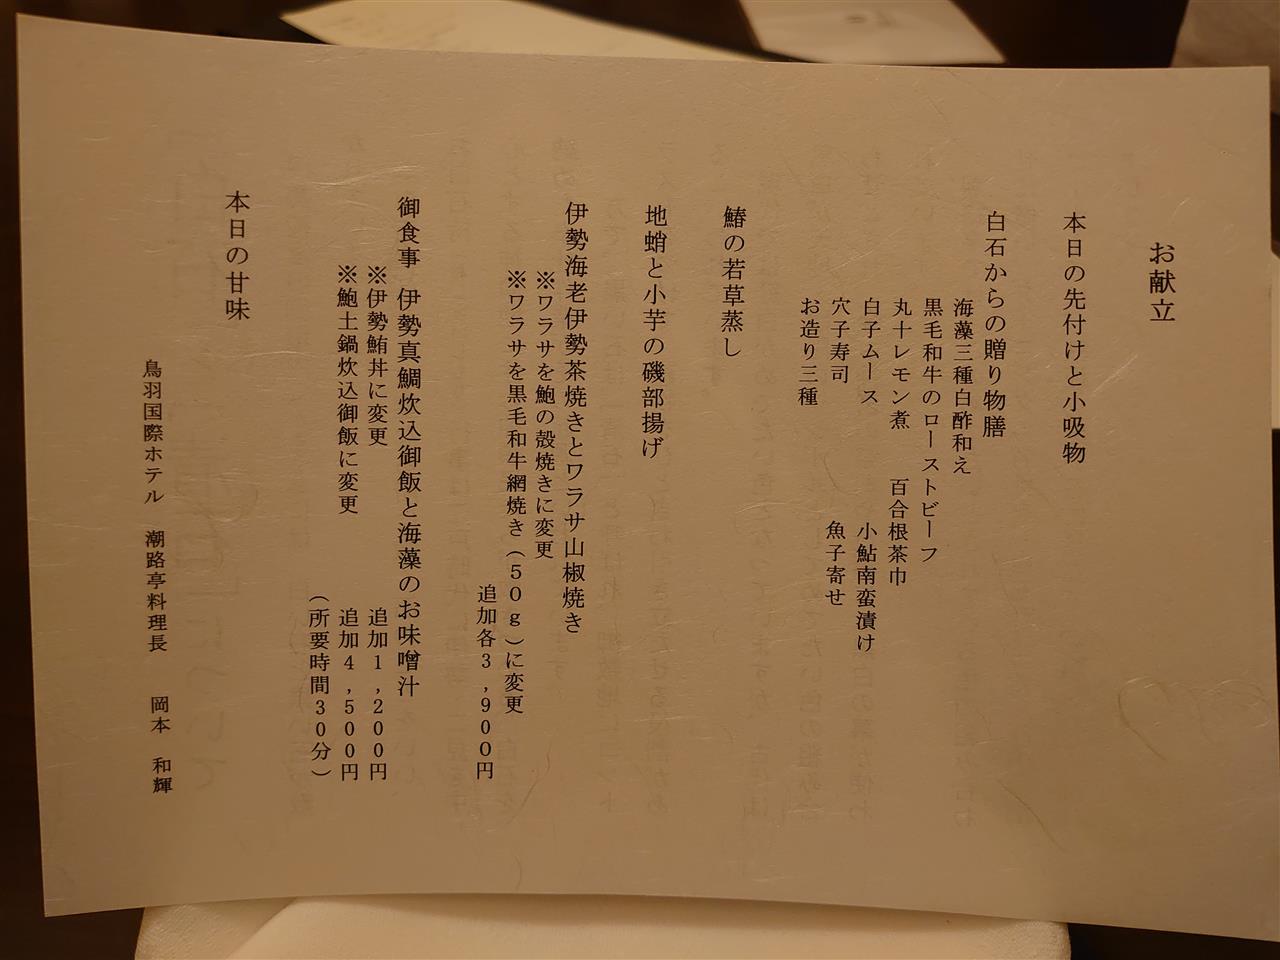 お献立
本日の先付けと小吸物
白石からの贈り物膳
海藻三種白酢和え
黒毛和牛のローストビーフ
丸十レモン煮　百合根茶巾
白子ムース　小鮎南蛮漬け
穴子寿司　魚子寄せ
お造り三種
鰆の若草蒸し
地蛸と小芋の磯部揚げ
伊勢海老伊勢茶焼きとワラサ山椒焼き
※ワラサを鮑の殻焼きに変更
※ワラサを黒毛和牛網焼き(50g)に変更
追加各3,900円
御食事　伊勢真鯛炊込御飯と海藻のお味噌汁
※伊勢鮪丼に変更　追加1,200円
※鮑土鍋炊込御飯に変更　追加4,500円
(所要時間30分)
本日の甘味
鳥羽国際ホテル　潮路亭料理長　岡本　和輝